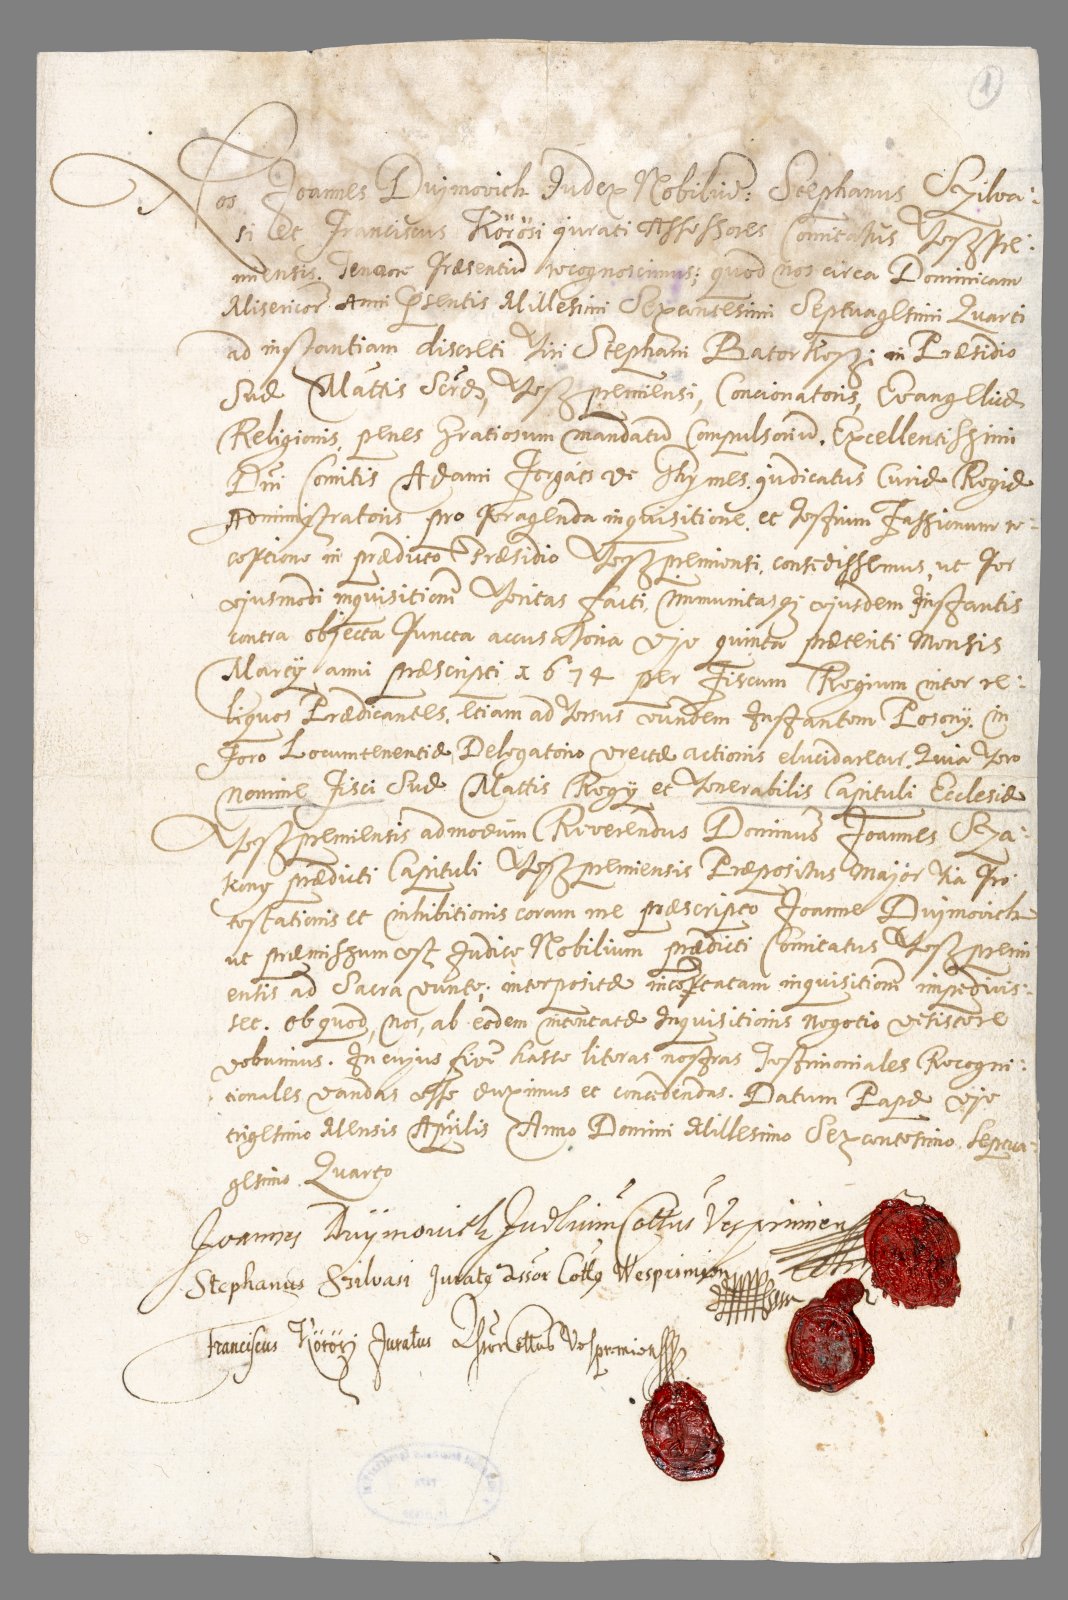 1
Nos Joannes Dujmovich Judex Nobiliũ: Stephanus Szilva-:
si et Franciscus Körösi jurati Assessores Comitatus Veszpre-:
miensis. Tenore Præsentiũ recognoscimus; quod nos circa Dominicam
Misericor Anni Pr̃sentis Millesimi Sexcentesimi Septuagesimi Quarti
ad instantiam discreti Viri Stephani Batorkeszi in Præsidio
Suæ Mattis Veszpremiensi, Concionatoris, Evangelicæ
Religionis, penes Gratiosum mandatũ Compulsoriũ, Excellentissimi
Dñi Comitis Adami Forgács de Ghymes, judicatus Curiæ Regiæ
Administratoris pro peragenda inquisitione, et Testium Fassionum re-:
ceptione in prædicto Præsidio Veszpremiensi, consedissemus, ut per
ejusmodi inquisitionẽ Veritas facti, Immunitasq; ejusdem Instantis
contra objecta puncta accusatoria die quinta præteriti Mensis
Martÿ anni præscripti 1674 per Fiscum Regium inter re-:
liquos Prædicantes, etiam adversus eundem Instantem Posonÿ in
Foro Locumtenentiæ Delegatorio erectæ actionis elucidaretur, Quia vero
nomine Fisci Suæ Mattis Regÿ et Venerabilis Capituli Ecclesiæ
Veszpremiensis admodum Reverendus Dominus Joannes Sza-:
kony prædicti Capituli Veszpremiensis Præpositus Major via Pro
testationis et inhibitionis coram me præscripto Joanne Dujmovich
ut præmissum est Judice Nobilium prædicti Comitatus Veszpremi
ensis ad Sacra eunte; interpositæ inceptatam inquisitionẽ impedivis-:
set. Ob quod, nos, ab eodem intentatæ Inquisitionis negotio desistere
debuimus. In cujus fidẽ hasce literas nostras Testimoniales Recogni-:
tionales dandas esse duximus et concedendas. Datum Papæ die
trigesimo Mensis Aprilis Anno Domini Millesimo Sexcentesimo Septua-
gesimo Quarto
Joannes Duÿmovich Judlium Cottus Vesprimien
Stephanus Szilvasi Juratq assor Cottq Wesprimien
Franciscus Körösi Juratus Assor Cottus Vespremien